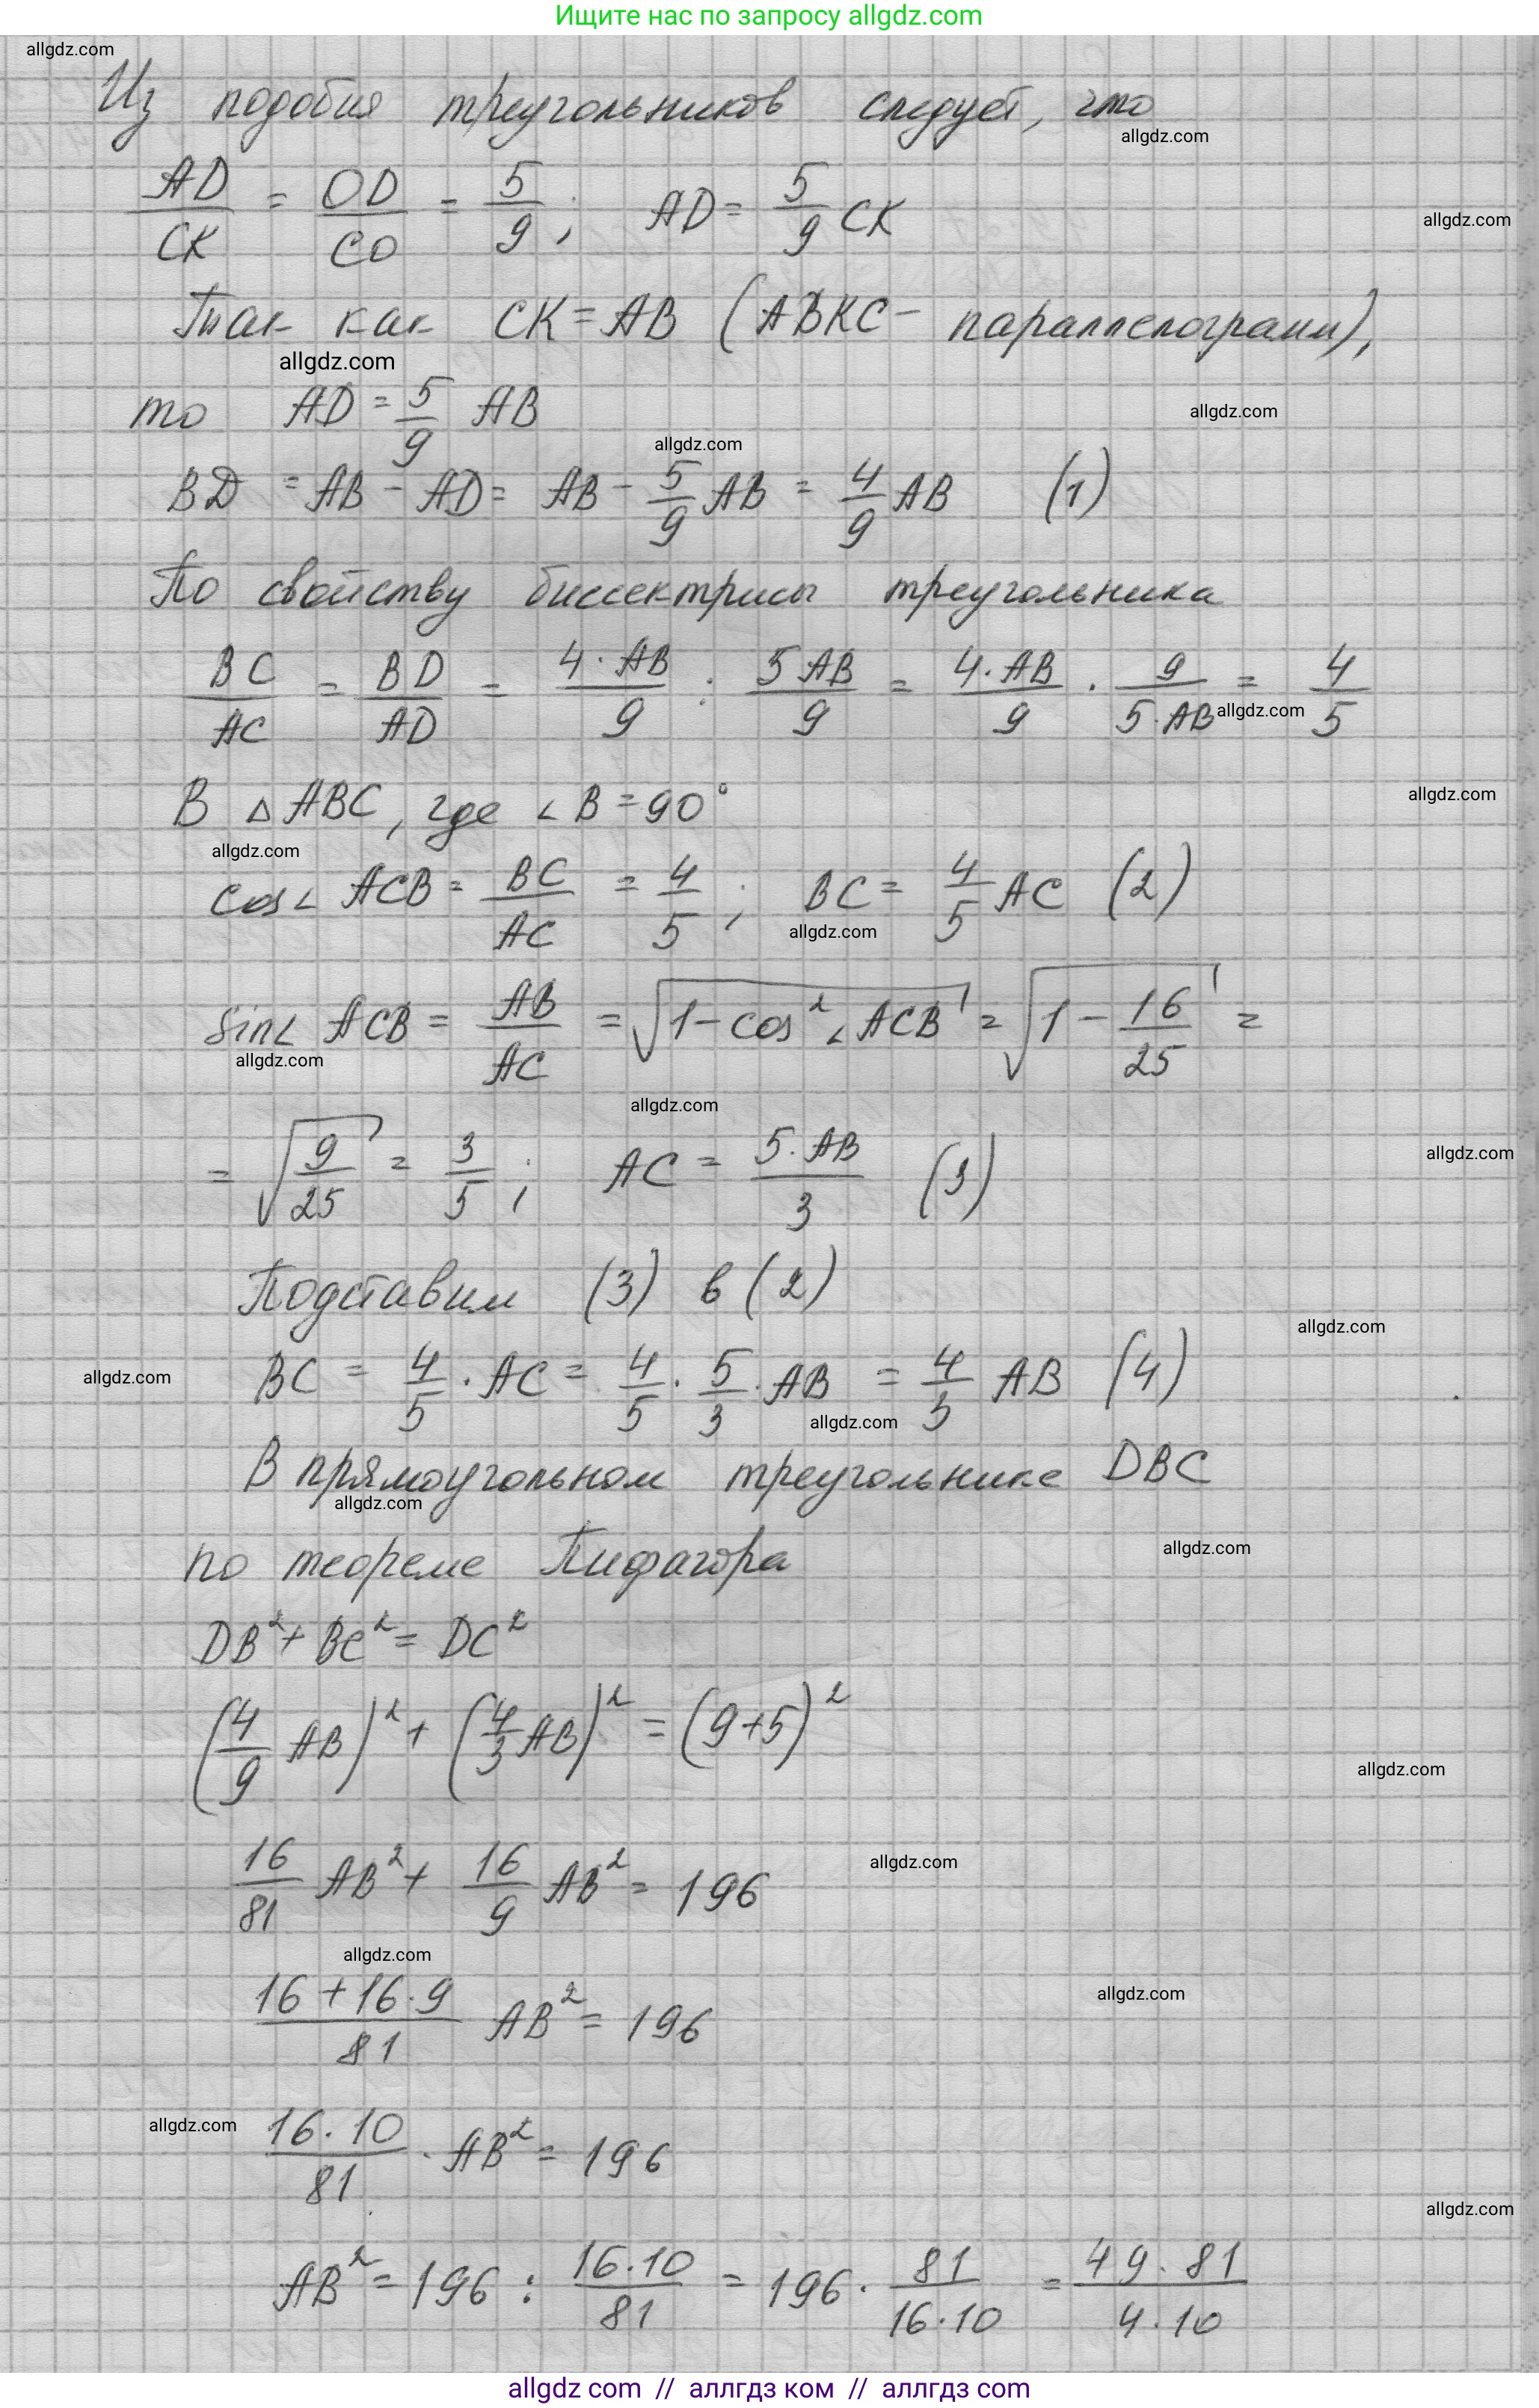 Ищите нас по запросу allgdz.com
allgdz.com
Из подобия треугольников следует, что
allgdz.com
AD/CK = OD/CO = 5/9; AD = 5/9 CK
allgdz.com
Так как CK = AB (ABKC - параллелограмм),
allgdz.com
то AD = 5/9 AB
allgdz.com
allgdz.com
BD = AB - AD = AB - 5/9 AB = 4/9 AB (1)
По свойству биссектрисы треугольника
BC/AC = BD/AD = 4·AB/9 : 5AB/9 = 4·AB/9 · 9/5·AB = 4/5
allgdz.com
allgdz.com
В △ABC, где ∠B = 90°
allgdz.com
cos∠ACB = BC/AC = 4/5; BC = 4/5 AC (2)
allgdz.com
sin∠ACB = AB/AC = √(1 - cos²∠ACB) = √(1 - 16/25) =
allgdz.com
allgdz.com
= √(9/25) = 3/5; AC = 5·AB/3 (3)
allgdz.com
Подставим (3) в (2)
allgdz.com
allgdz.com
BC = 4/5 · AC = 4/5 · 5/3 · AB = 4/3 AB (4)
allgdz.com
В прямоугольном треугольнике DBC
allgdz.com
по теореме Пифагора
allgdz.com
DB² + BC² = DC²
(4/9 AB)² + (4/3 AB)² = (9+5)²
allgdz.com
16/81 AB² + 16/9 AB² = 196
allgdz.com
allgdz.com
16 + 16·9/81 AB² = 196
allgdz.com
allgdz.com
16·10/81 · AB² = 196
allgdz.com
AB² = 196 : 16·10/81 = 196 · 81/16·10 = 49·81/4·10
allgdz com // аллгдз ком // аллгтз com